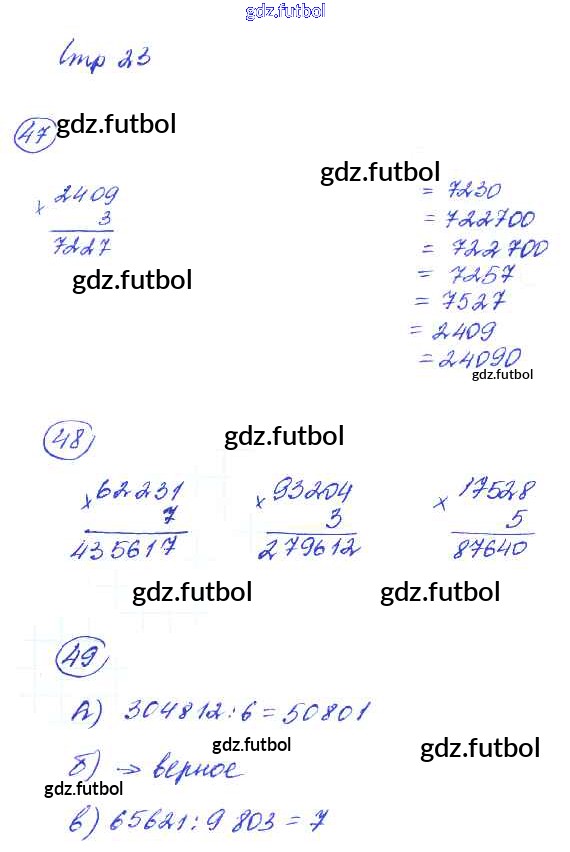 gdz.futbol
Стр 23
47 gdz.futbol
gdz.futbol
× 2409
3
7227
gdz.futbol
= 7230
= 722700
= 722700
= 7257
= 7527
= 2409
= 24090
gdz.futbol
48
gdz.futbol
× 62231
7
435617
× 93204
3
279612
× 17528
5
87640
gdz.futbol gdz.futbol
49
А) 304812:6=50801
gdz.futbol gdz.futbol
б) → верное
gdz.futbol
в) 65621:9803=7